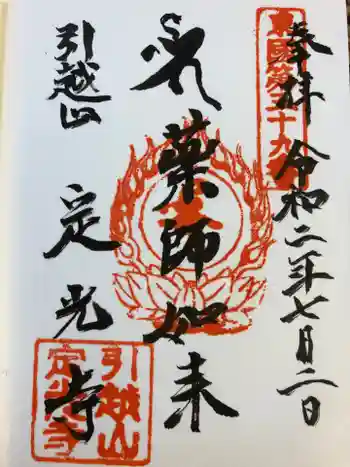 奉拝 令和二年七月二日
東国第五十九
薬師如来
引越山
定光寺
引越山
定光寺